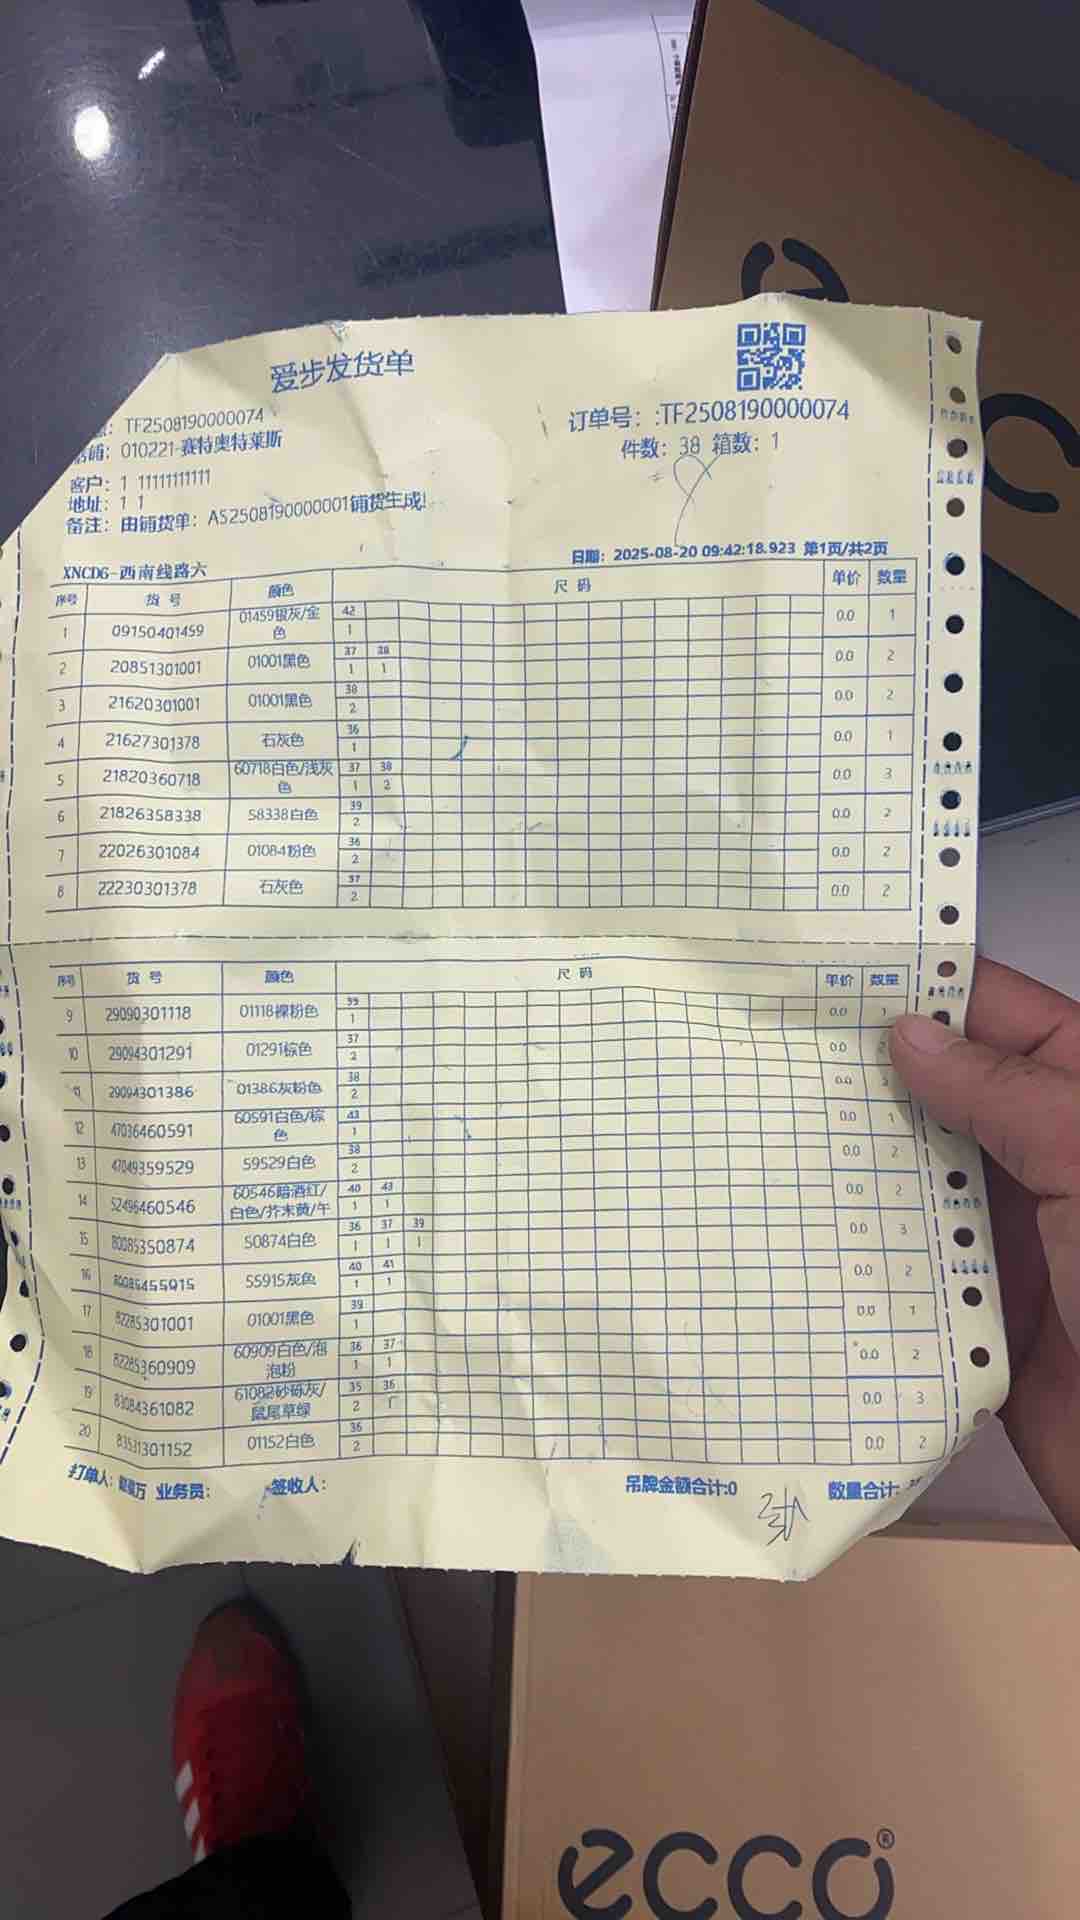 爱步发货单
TF2508190000074
订单号：:TF2508190000074
店铺：010221-赛特奥特莱斯
件数：38 箱数：1
客户：1 11111111111
地址：1 1
备注：由铺货单：AS2508190000001铺货生成!
日期：2025-08-20 09:42:18.923 第1页/共2页
XNCD6-西南线路六
序号 货 号 颜色 尺 码 单价 数量
1 09150401459 01459银灰/金色 42 1 0.0 1
2 20851301001 01001黑色 37 38 1 1 0.0 2
3 21620301001 01001黑色 38 2 0.0 2
4 21627301378 石灰色 36 1 0.0 1
5 21820360718 60718白色/浅灰色 37 38 1 2 0.0 3
6 21826358338 58338白色 39 2 0.0 2
7 22026301084 01084粉色 36 2 0.0 2
8 22230301378 石灰色 37 2 0.0 2
序号 货 号 颜色 尺 码 单价 数量
9 29090301118 01118裸粉色 39 1 0.0 1
10 29094301291 01291棕色 37 2 0.0
11 29094301386 01386灰粉色 38 2 0.0 2
12 47036460591 60591白色/棕色 43 1 0.0 1
13 47049359529 59529白色 38 2 0.0 2
14 52496460546 60546暗酒红/白色/芥末黄/午 40 43 1 1 0.0 2
15 80085350874 50874白色 36 37 39 1 1 1 0.0 3
16 80085455915 55915灰色 40 41 1 1 0.0 2
17 82285301001 01001黑色 39 1 0.0 1
18 82285360909 60909白色/泡泡粉 36 37 1 1 0.0 2
19 83084361082 61082砂砾灰/鼠尾草绿 35 36 2 1 0.0 3
20 83531301152 01152白色 36 2 0.0 2
打单人： 业务员： 签收人： 吊牌金额合计:0 数量合计:
ecco®